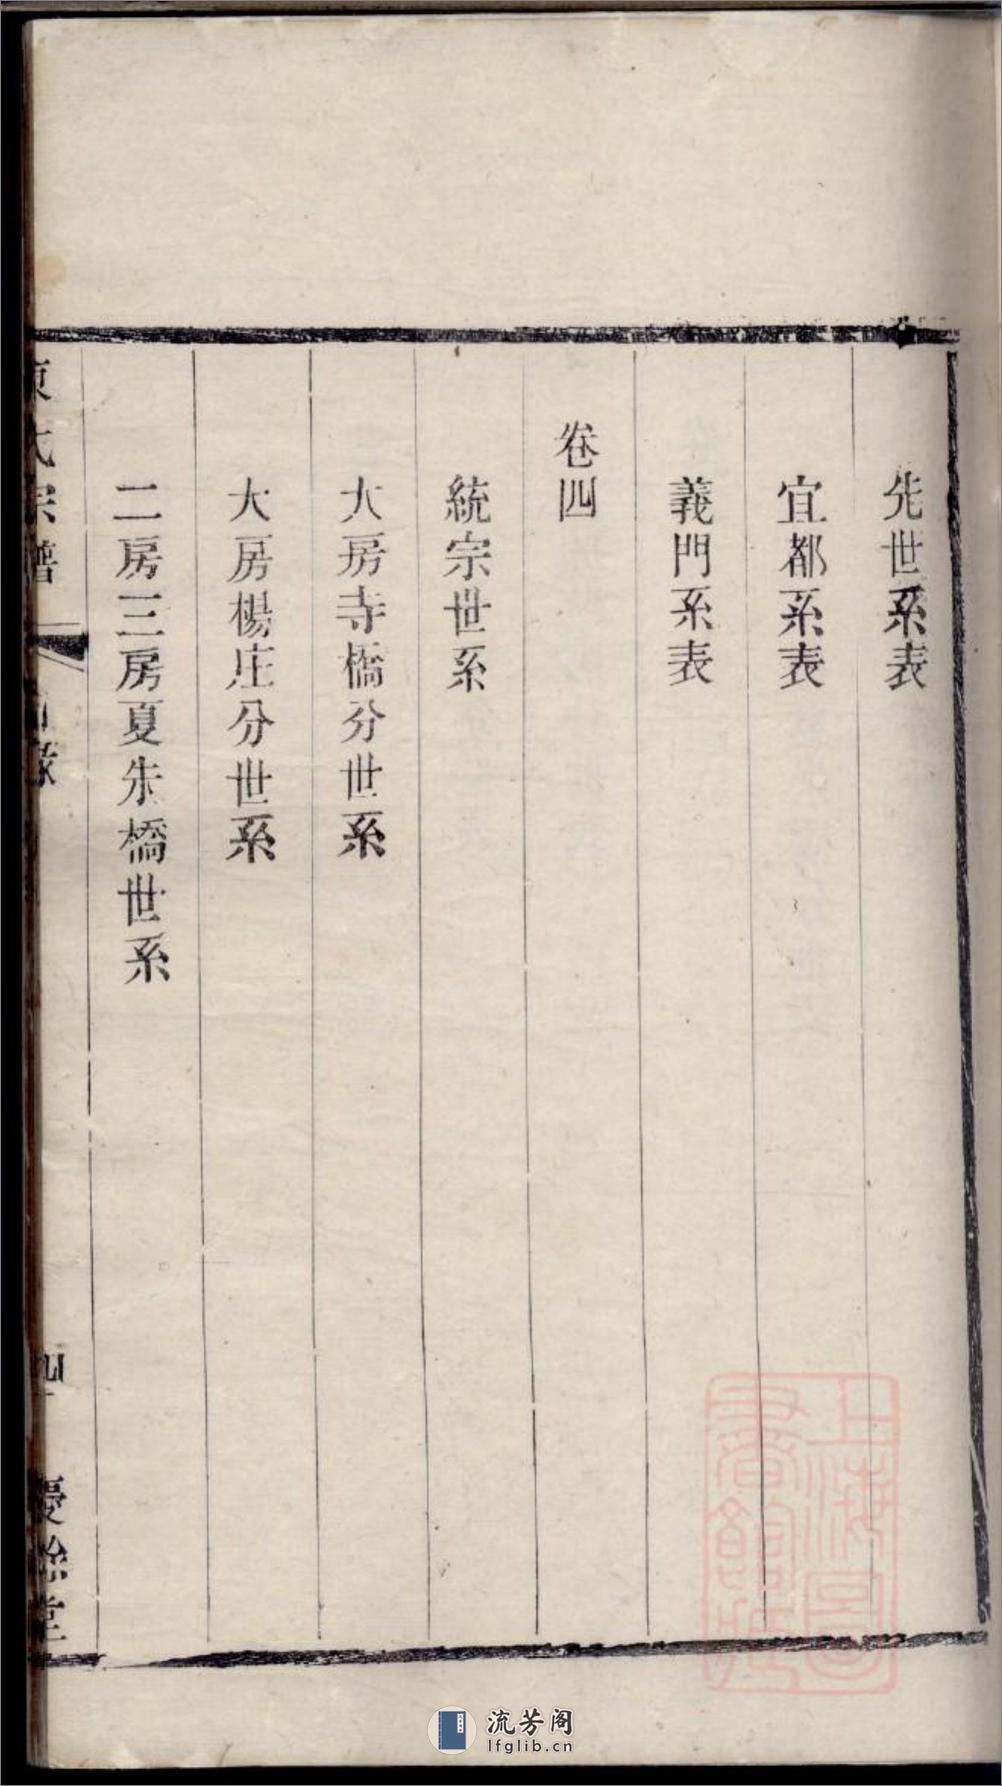 先世系表
宜都系表
義門系表
卷四
統宗世系
大房寺橋分世系
大房楊庄分世系
二房三房夏朱橋世系
宗譜
目錄
四
慶餘堂
上海圖書館藏
流芳阁
lfglib.cn